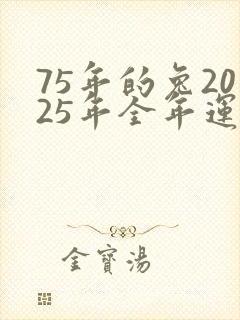 75年的兔20
25年全年運
金寳湯